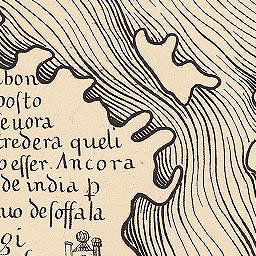 bon
posto
euora
credera queli
p esser. Ancora
de india p
nuo de soffala
gi